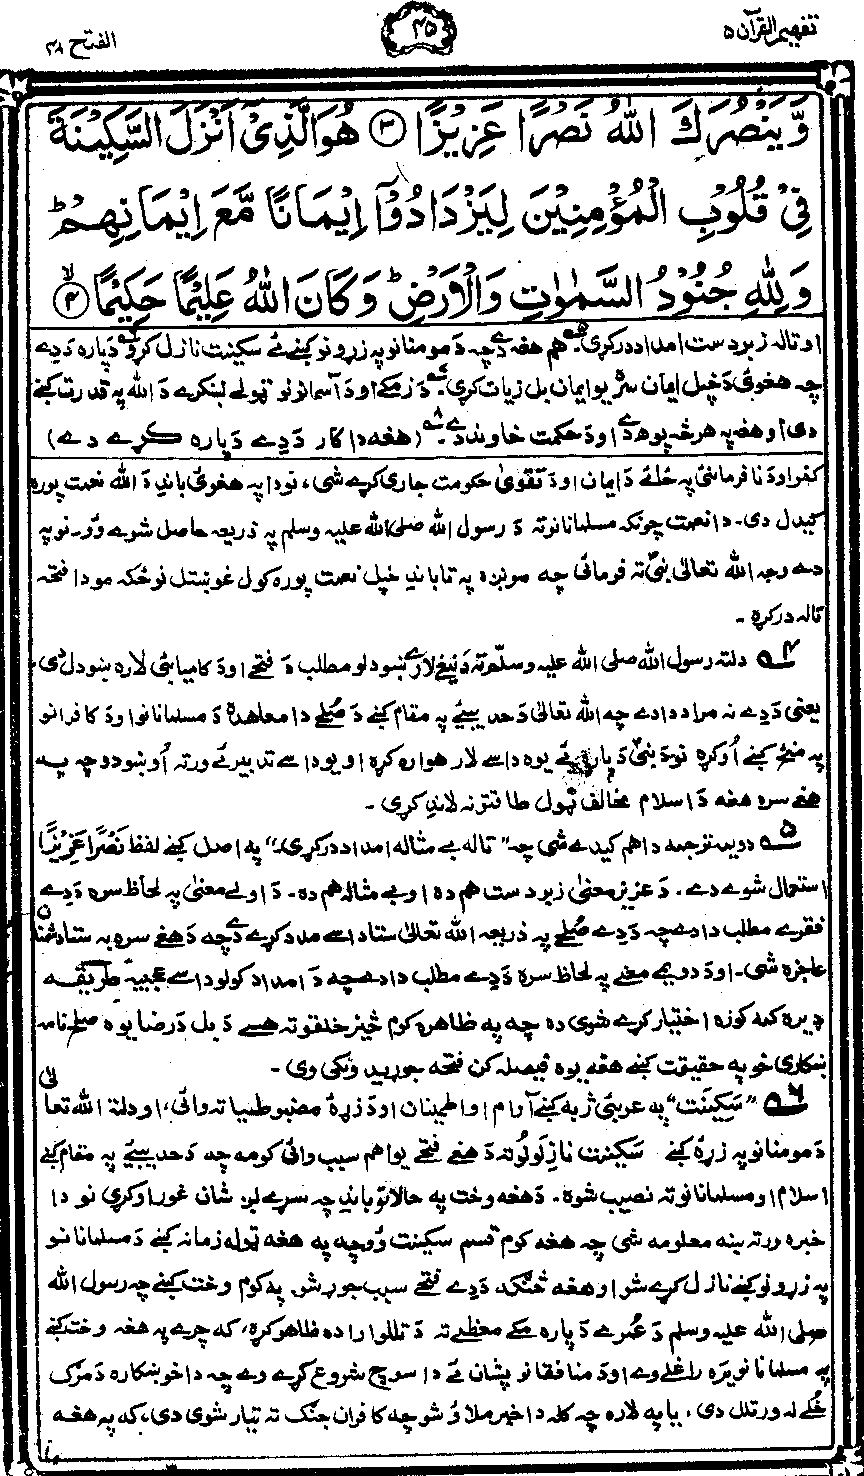 تفهیم القرآن ۵
۴۵
الفتح ۴۸
وَّیَنْصُرَكَ اللّٰهُ نَصْرًا عَزِیْزًا ﴿۳﴾ هُوَ الَّذِیْۤ اَنْزَلَ السَّكِیْنَةَ
فِیْ قُلُوْبِ الْمُؤْمِنِیْنَ لِیَزْدَادُوْۤا اِیْمَانًا مَّعَ اِیْمَانِهِمْ ؕ
وَ لِلّٰهِ جُنُوْدُ السَّمٰوٰتِ وَالْاَرْضِ ؕ وَ كَانَ اللّٰهُ عَلِیْمًا حَكِیْمًا ﴿۴﴾ ۙ
او تاله زبردست امداد درکړی ۵ هم هغه دے چه دَ مومنانو په زړونو کښے ئے سکینت نازل کړو ۶ دَپاره دَدے
چه هغوی دَخپل ایمان سره یو ایمان بل زیات کړی ۷ دَ زمکے او دَ آسمانونو ټولے لښکرے دَ الله په قدرت کښے
دی او هغه په هر څه پوهه دے او دَ حکمت خاوند دے ۸ (هغه دا کار دَدے دَپاره کړے دے)
کفر او دَ نافرمانئ په ځائے دَ ایمان او دَ تقویٰ حکومت جاری کړے شی، نو دا په هغوی باندِ دَ الله نعمت پوره
کیدل دی۔ دا نعمت چونکه مسلمانانو ته دَ رسول الله صلی الله علیه وسلم په ذریعه حاصل شوے وو۔ نو په
دے وجه الله تعالیٰ نبیؐ ته فرمائی چه مونږه په تا باندِ خپل نعمت پوره کول غوښتل نو ځکه مو دا فتحه
تاله درکړه ۔
۴ دلته رسول الله صلی الله علیه وسلّم ته دَ نیغے لارے ښودلو مطلب دَ فتحے او دَ کامیابئ لاره ښودل دی،
یعنی دَدے نه مراد دا دے چه الله تعالیٰ دَ حدیبیئے په مقام کښے دَ صُلحے دا معاهده دَ مسلمانانو او دَ کافرانو
په منځ کښے اُوکړه نو دَ نبیؐ دَپاره ئے یوه داسے لار هواره کړه او یو داسے تدبیر ئے ورته اُوښودو چه په
هغے سره هغه دَ اسلام مخالف ټول طاقتونه لاندِ کړی ۔
۵ دویمه ترجمه دا هم کیدے شی چه ”تاله بے مثاله امداد درکړی۔“ په اصل کښے لفظ نَصْرًا عَزِیْزًا
استعمال شوے دے ۔ دَ عزیز معنیٰ زبردست هم ده او بے مثاله هم ده ۔ دَ اولے معنیٰ په لحاظ سره دَدے
فقرے مطلب دا دے چه دَدے صُلحے په ذریعه الله تعالیٰ ستا داسے مدد کړے دے چه دَ هغے سره به ستا دشمنان
عاجزه شی ۔ او دَ دویمے معنے په لحاظ سره دَدے مطلب دا دے چه دَ امداد کولو داسے عجیبه طریقه
ډیره کمه کوزه اختیار کړے شوی ده چه په ظاهره کوم څیز خلقو ته هسے دَ بل دَ رضا یوه صلح نامه
ښکاری خو په حقیقت کښے هغه یوه فیصله کن فتحه جوړیدونکی وی ۔
۶ ”سَکِینَت“ په عربئ ژبه کښے آرام او اطمینان او دَ زړهٔ مضبوطیا ته وائی، او دلته الله تعالیٰ
دَ مومنانو په زړهٔ کښے سکینت نازلولو ته دَ هغے فتحے یو اهم سبب وائی کومه چه دَ حدیبیئے په مقام کښے
اسلام او مسلمانانو ته نصیب شوه ۔ دَ هغه وخت په حالاتو باندِ چه سړے لږ شان غور اوکړی نو دا
خبره ورته ښه معلومه شی چه هغه کوم قسم سکینت وُو چه په هغه ټوله زمانه کښے دَ مسلمانانو
په زړونو کښے نازل کړے شو او هغه څنګه دَدے فتحے سبب جوړ شو په کوم وخت کښے چه رسول الله
صلی الله علیه وسلم دَ عُمرے دَپاره مکے معظمے ته دَ تللو اراده ظاهر کړه، که چرے په هغه وخت کښے
په مسلمانانو یره راغلے وے او دَ منافقانو په شان ئے دا سوچ شروع کړے وے چه دا خو ښکاره دَ مرګ
خُلے له ورتلل دی، یا په لاره چه کله دا خبر ملاو شو چه کافران جنګ ته تیار شوی دی، که په هغه